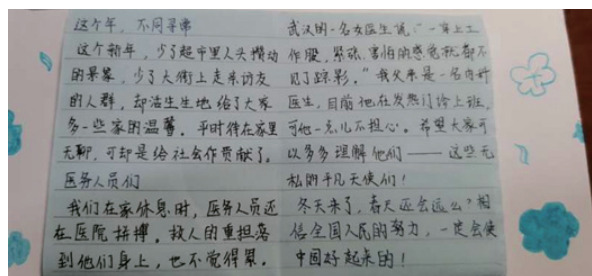 这个年，不同寻常
这个新年，少了超市里人头攒动
的景象，少了大街上走亲访友
的人群，却活生生地给了大家
多一些家的温馨。平时待在家里
无聊，可却是给社会作贡献了。
医务人员们
我们在家休息时，医务人员还
在医院拼搏。救人的重担落
到他们身上，也不觉得累。
武汉的一名女医生说："一穿上工
作服，紧张、害怕的感觉就都不
见了踪影。"我父亲是一名内科
医生，目前他在发热门诊上班，
可他一点儿不担心。希望大家可
以多多理解他们——这些无
私的平凡天使们！
冬天来了，春天还会远么？相
信全国人民的努力，一定会使
中国好起来的！